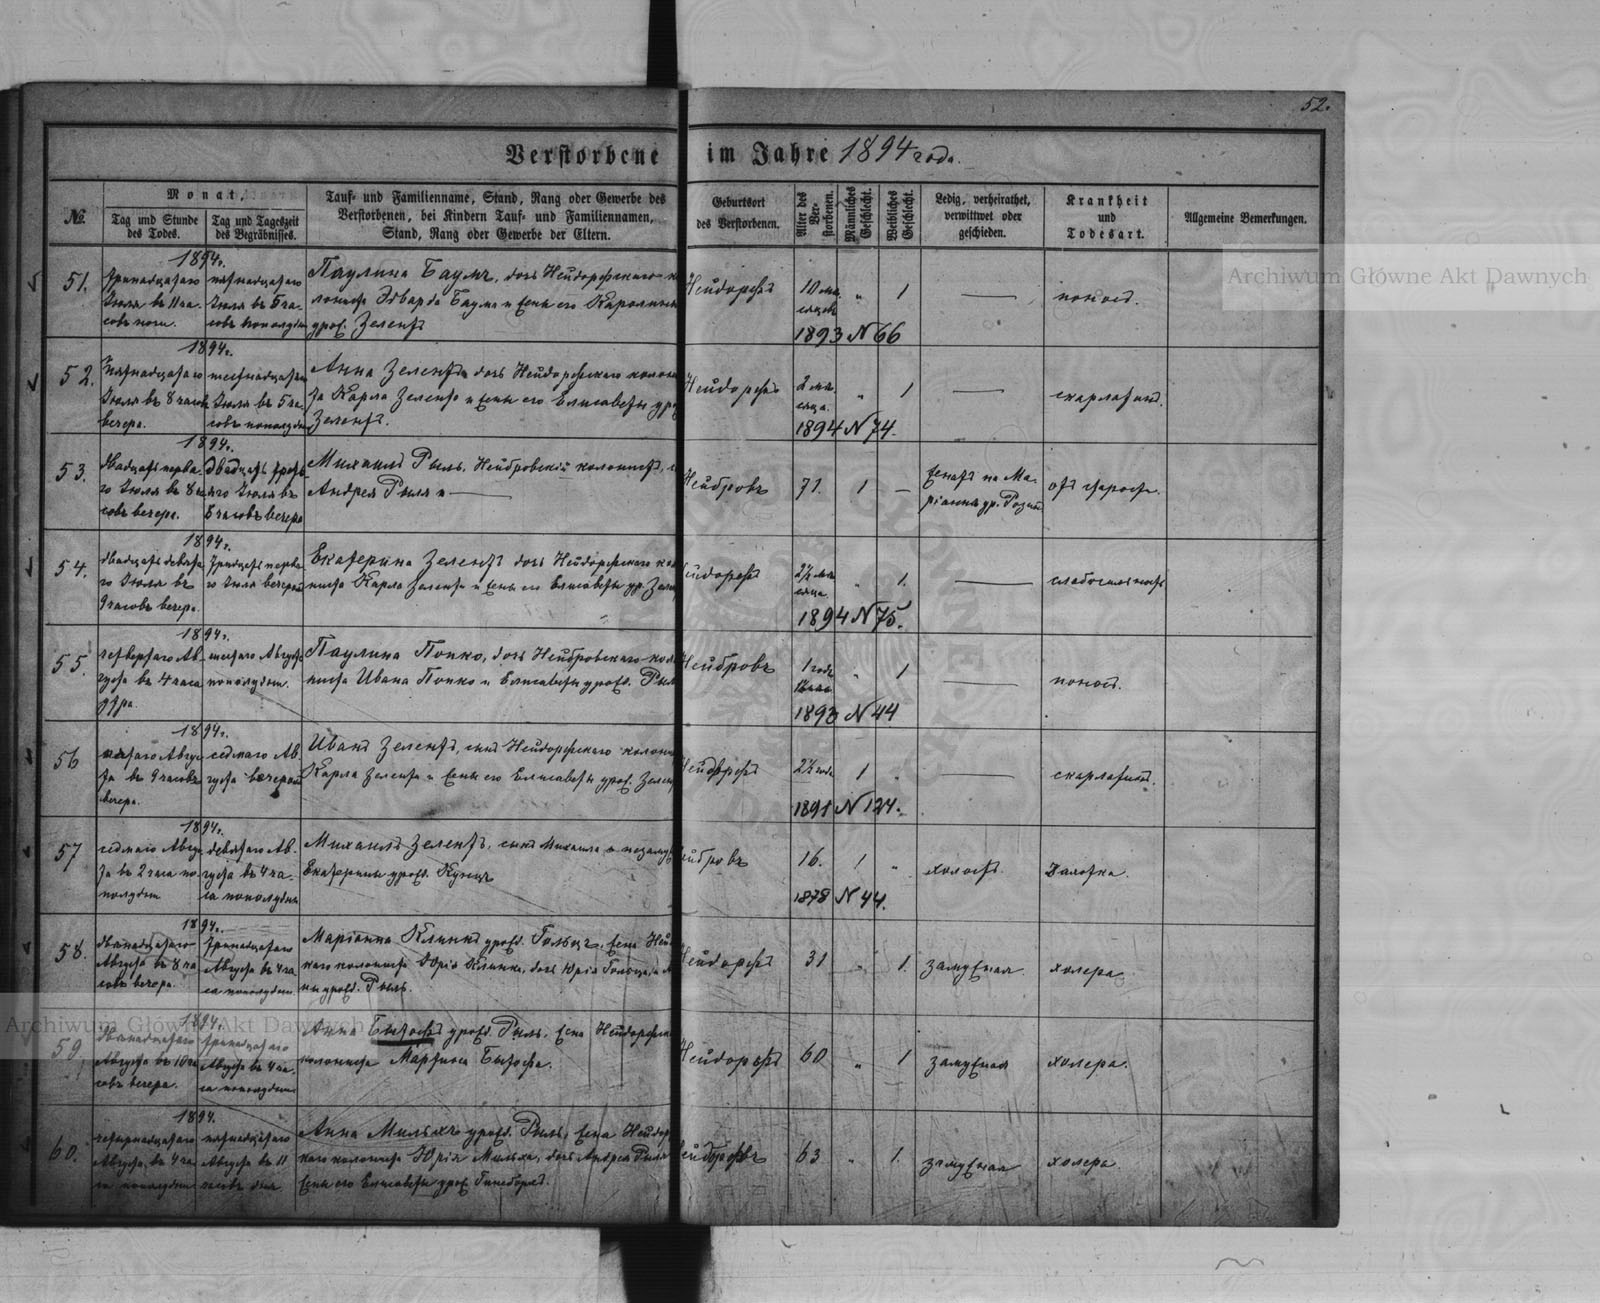 52.
Verstorbene im Jahre 1894 года.
№.
Monat,
Tag und Stunde des Todes.
Tag und Tageszeit des Begräbnisses.
Tauf- und Familienname, Stand, Rang oder Gewerbe des
Verstorbenen, bei Kindern Tauf- und Familiennamen,
Stand, Rang oder Gewerbe der Eltern.
Geburtsort
des Verstorbenen.
Alter des Ver-
storbenen.
Männliches Geschlecht.
Weibliches Geschlecht.
Ledig, verheirathet,
verwittwet oder
geschieden.
Krankheit
und
Todesart.
Allgemeine Bemerkungen.
1894г.
51.
тринадцатаго
Іюля въ 11 ча-
совъ ночи.
пятнадцатаго
Іюля въ 5 ча-
совъ пополудни
Паулина Баумъ, дочь Нейдорфскаго ко
лониста Эдварда Баума и жены его Каролины
урож. Зелентъ
Нейдорфъ
10 мѣ
сяцевъ
"
1
поносъ.
1893 N 66
1894г.
52.
пятнадцатаго
Іюля въ 8 часовъ
вечера.
шестнадцатаго
Іюля въ 5 ча-
совъ пополудни
Анна Зелентъ дочь Нейдорфскаго колони
та Карла Зелента и жены его Елисаветы ур
Зелентъ.
Нейдорфъ
2 мѣ-
сяца.
"
1
скарлатина.
1894 N 74.
1894г.
53.
двадцать перва-
го Іюля въ 8 ча
совъ вечера.
двадцать треть
яго Іюля въ
часовъ вечера
Михаилъ Рыль, Нейбровскій колонистъ,
Андрея Рыля и
Нейбровъ
71.
1
женатъ на Ма-
ріаннѣ ур.
отъ старости.
1894г.
54.
двадцать девята
го Іюля въ
9 часовъ вечера.
тридцать перва
го Іюля вечеромъ
Екатерина Зелентъ дочь Нейдорфскаго кол
ниста Карла Зелента и жены его Елисаветы ур. Зелен
ейдорфъ
2½ мѣ
сяца.
"
1.
1894 N 75.
1894г.
55.
четвертаго Ав-
густа въ 4 часа
утра.
шестаго Августа
пополудни.
Паулина Попко, дочь Нейбровскаго коло
ниста Ивана Попко и Елисаветы урожд. Рыль
Нейбровъ
1 годъ
"
1
поносъ.
1893 N 44
1894г.
56
пятаго Авгус
та въ 9 часовъ
вечера.
седмаго Ав-
густа вечеромъ
Иванъ Зелентъ, сынъ Нейдорфскаго колони
Карла Зелента и жены его Елисаветы урож. Зелен
Нейдорфъ
2½ года
1
"
скарлатина.
1891 N 124.
1894г.
57
седмаго Авгус
та въ 2 часа по-
полудни
девятаго Ав-
густа въ 4 ча-
са пополудни
Михаилъ Зелентъ, сынъ Михаила и
Екатерины урож. Кунцъ
ейбровъ
16.
1
"
холостъ.
1878 N 44.
1894г.
58.
двѣнадцатаго
Августа въ 8 ча
совъ вечера.
тринадцатаго
Августа въ 4 ча
са пополудни.
Маріанна Клинкъ урожд. Гольцъ, жена Ней
каго колониста Юрія Клинка, дочь Юрія Гольца и А
ны урожд. Рыль.
Нейдорфъ
31
"
1.
замужная
холера
1894г.
59.
двѣнадцатаго
Августа въ 10 ча
совъ вечера.
тринадцатаго
Августа въ 4 ча-
са пополудни
Анна Бытофтъ урожд. Рыль, жена Нейдорфска
колониста Мартина Бытофта.
Нейдорфъ
60
"
1.
замужная
холера.
1894.
60.
четырнадцатаго
Августа, въ 4 ча
са пополудни
пятнадцатаго
Августа въ 11
часовъ дня.
Анна Мильхъ урожд. Рыль, жена Нейдор
каго колониста Юрія Мильха, дочь Андрея Рыля
жены его Елисаветы урож.
63
"
1.
замужная
холера
Archiwum Główne Akt Dawnych
Archiwum Główne Akt Dawnych